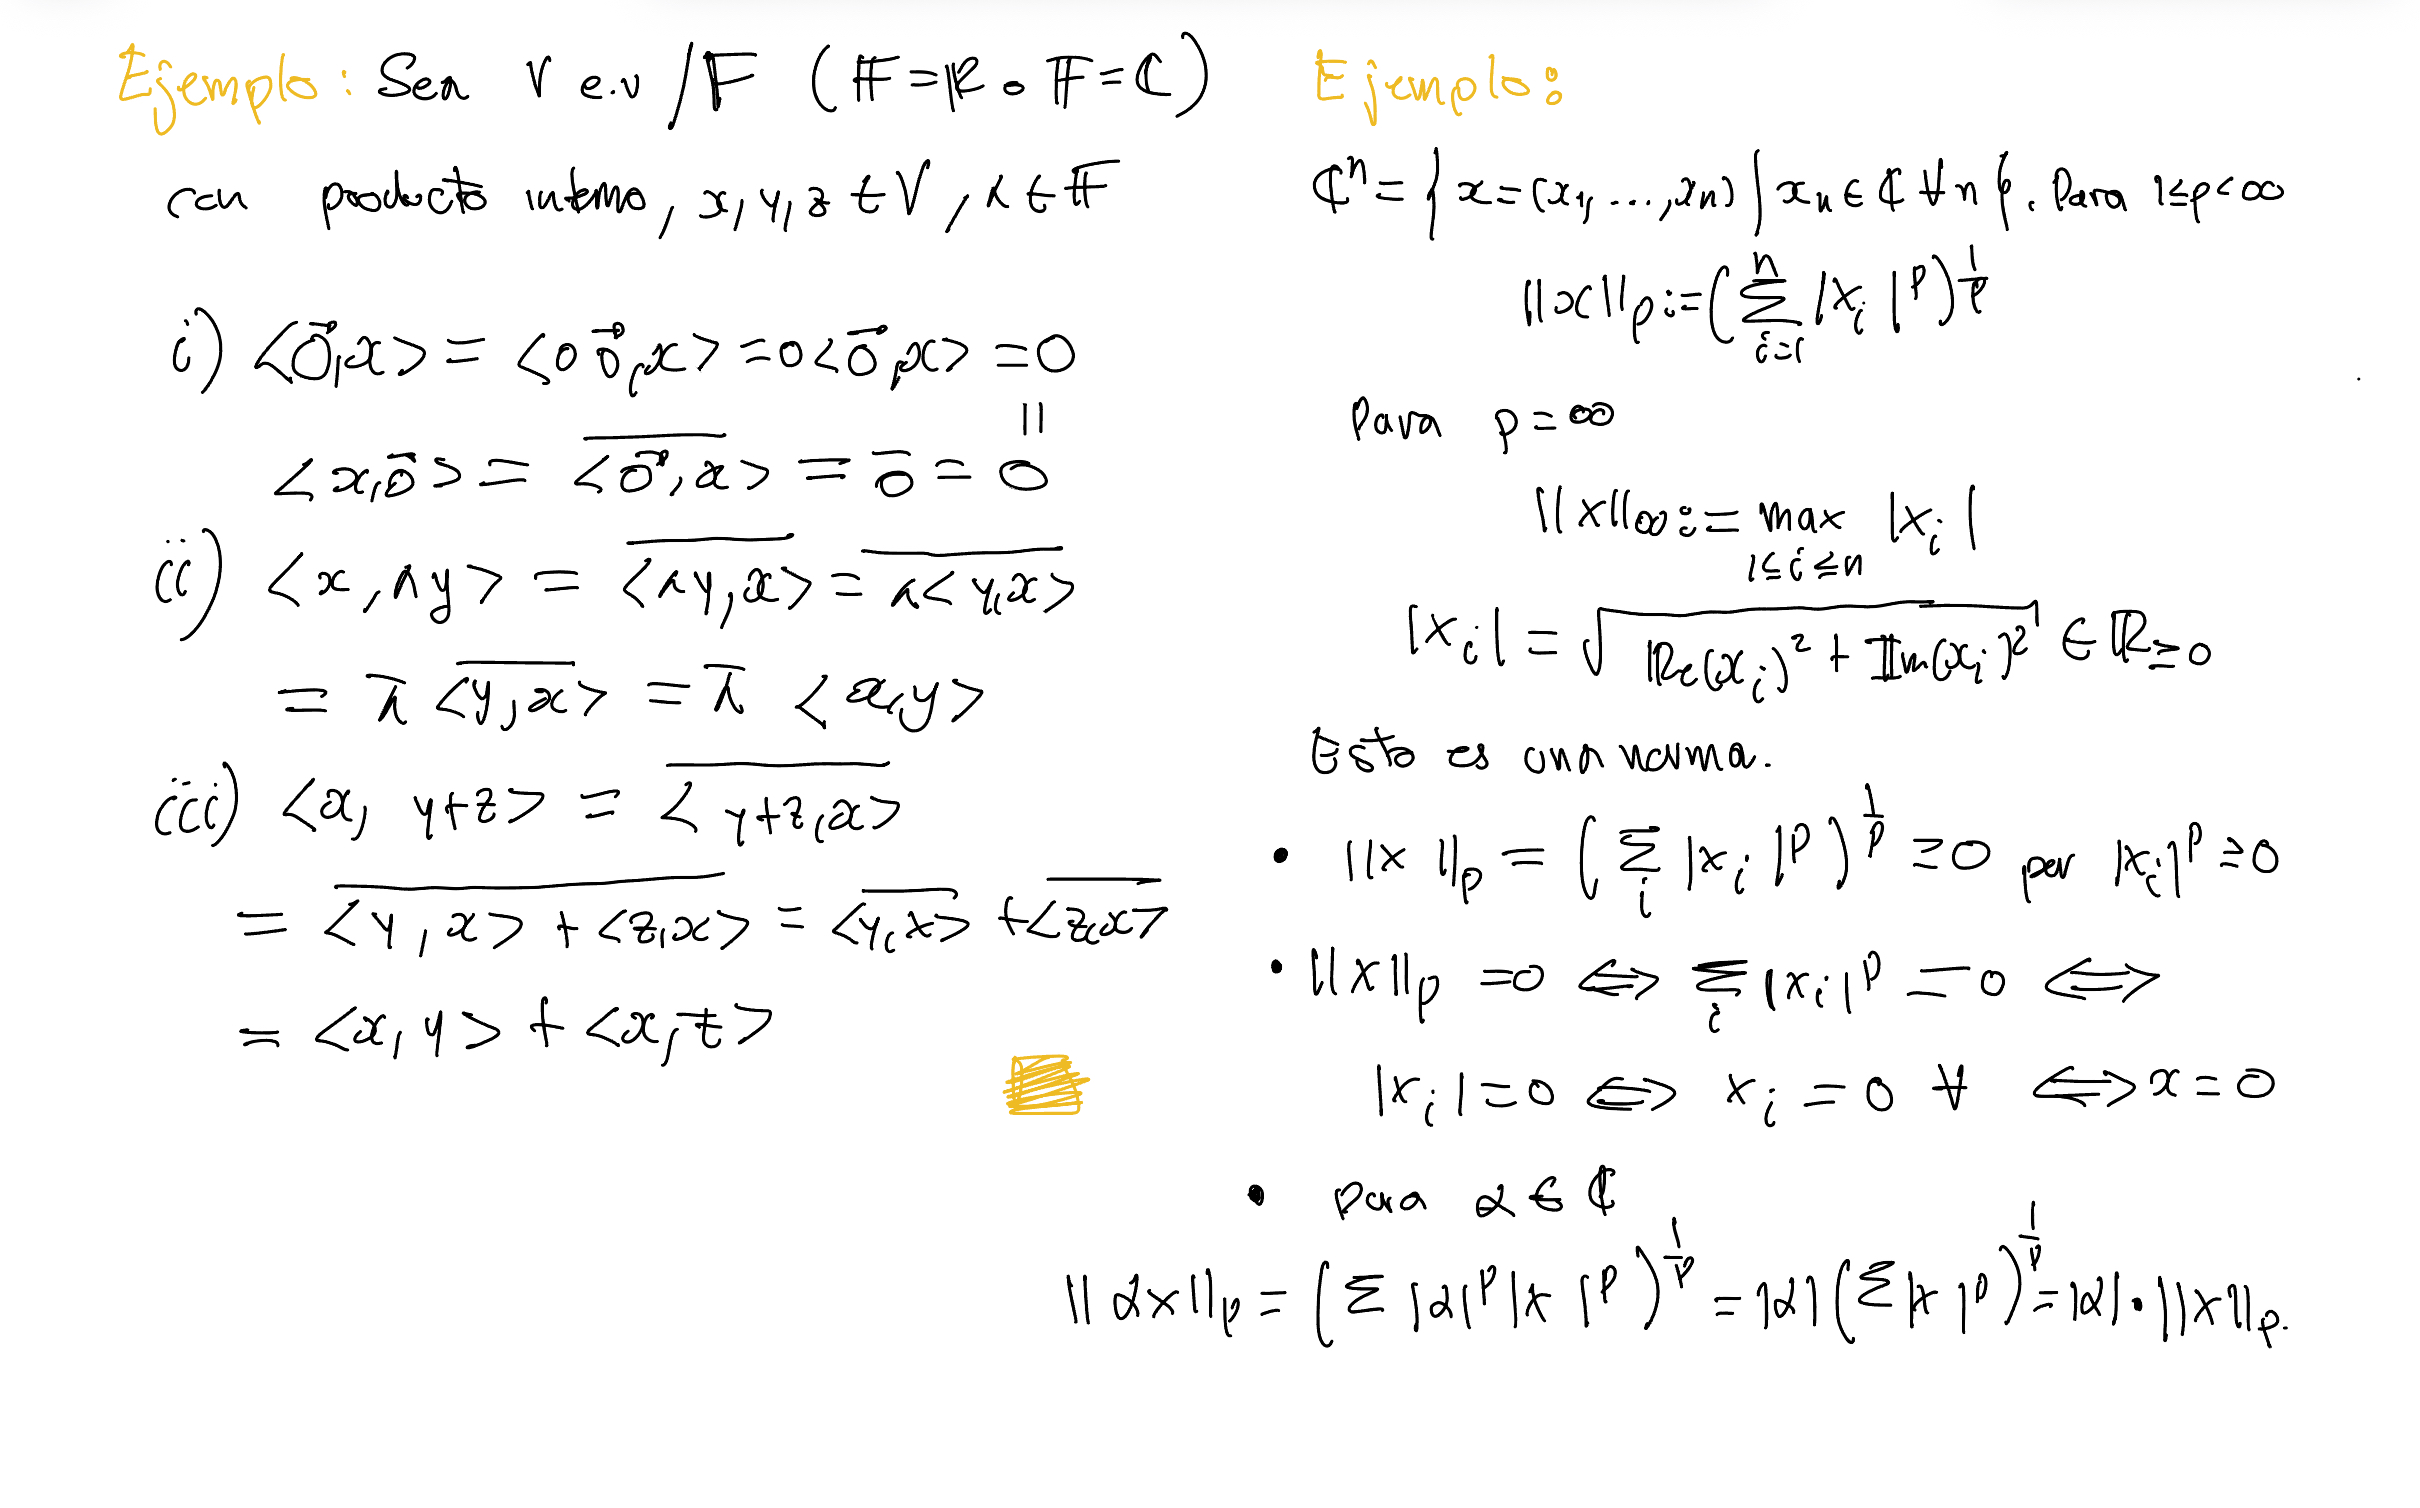 Ejemplo: Sea V e.v /𝔽 (𝔽=ℝ o 𝔽=ℂ)
con producto interno, x, y, z ∈ V, λ ∈ 𝔽
i) <0⃗,x> = <0 0⃗,x> = 0<0⃗,x> = 0
||
<x,0⃗> = \overline{<0⃗,x>} = \overline{0} = 0
ii) <x,λy> = \overline{<λy,x>} = \overline{λ<y,x>}
= \overline{λ} \overline{<y,x>} = \overline{λ} <x,y>
iii) <x, y+z> = \overline{<y+z,x>}
= \overline{<y,x> + <z,x>} = \overline{<y,x>} + \overline{<z,x>}
= <x,y> + <x,z>
Ejemplo:
ℂⁿ = { x=(x₁, ..., xₙ) | xₙ ∈ ℂ ∀ n }. Para 1≤p<∞
||x||_p := (∑_{i=1}^{n} |x_i|^p)^{1/p}
Para p=∞
||x||_∞ := max_{1≤i≤n} |x_i|
|x_i| = √(ℝe(x_i)² + 𝕀m(x_i)²) ∈ ℝ_{≥0}
Esto es una norma.
• ||x||_p = (∑_i |x_i|^p)^{1/p} ≥0 por |x_i|^p ≥0
• ||x||_p =0 ⟺ ∑_i |x_i|^p =0 ⟺
|x_i|=0 ⟺ x_i = 0 ∀ ⟺ x=0
• Para α ∈ ℂ
||αx||_p = (∑ |α|^p|x|^p)^{1/p} = |α|(∑|x|^p)^{1/p} = |α|·||x||_p.